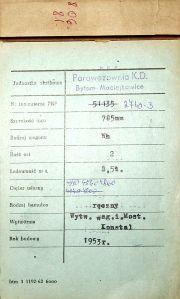 Jednostka służbowa Parowozownia K.D.
Bytom-Maciejkowice
Nr inwentarza PKP 51435 2740-3
Szerokość toru 785mm
Rodzaj wagonu Nh
Ilość osi 2
Ładowność w t. 3,5t.
Ciężar własny
Rodzaj hamulca ręczny
Wytwórnia Wytw. wag.i.Most.
Konstal
Rok budowy 1953r.